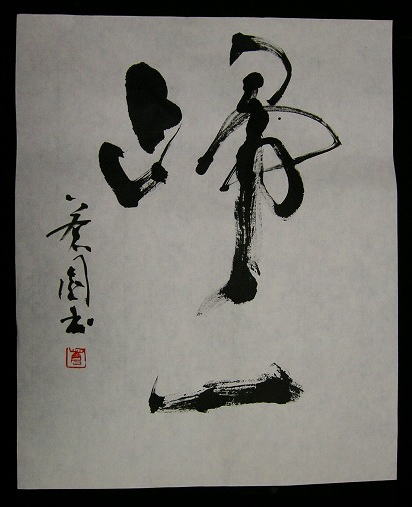 歸一
蒼園書